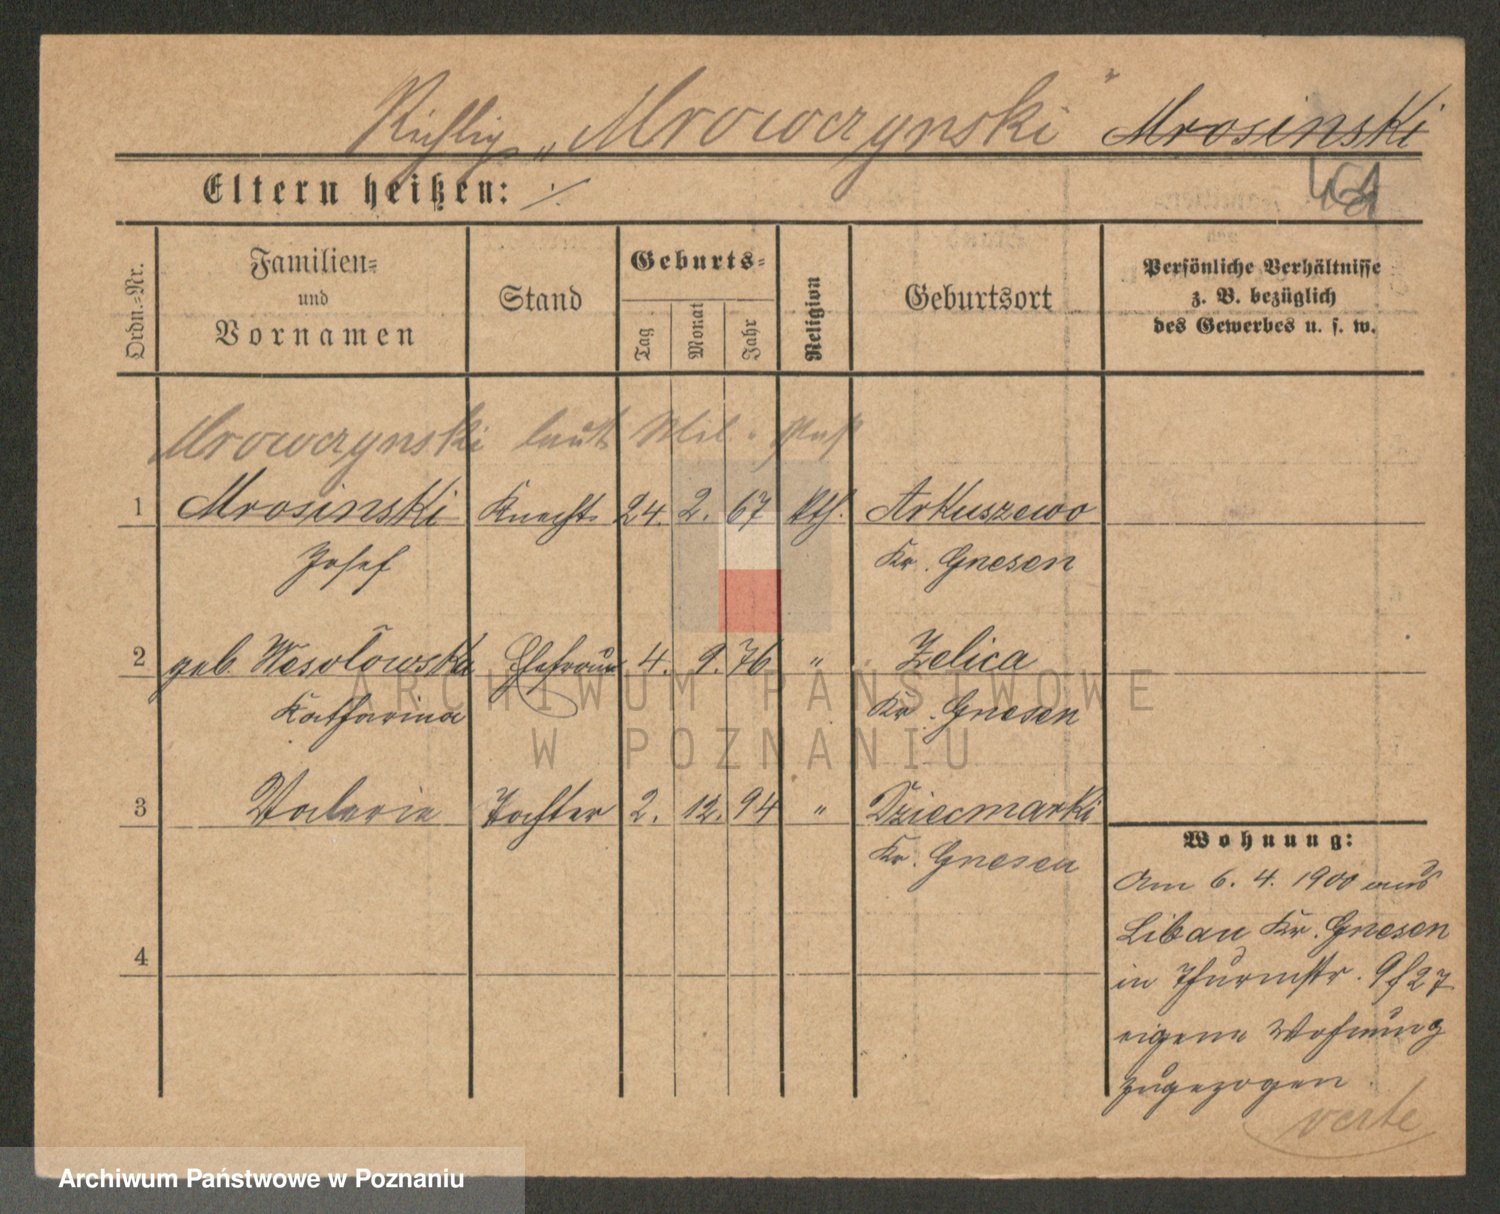 Richtig „Mrowczynski" Mrosinski
Eltern heißen: ·/·
Ordn.=Nr.
Familien=
und
Vornamen
Stand
Geburts=
Tag
Monat
Jahr
Religion
Geburtsort
Persönliche Verhältnisse
z. B. bezüglich
des Gewerbes u. s. w.
Mrowczynski laut Mil. Paß
1 Mrosinski Knecht 24. 2. 67 kth. Arkuszewo
Josef Kr. Gnesen
2 geb. Wesolowska Ehefrau 4. 9. 76 " Zelica
Katharina Kr. Gnesen
3 Valerie Tochter 2. 12. 94 " Dziecmarki
Kr. Gnesen
4
Wohnung:
Am 6. 4. 1900 aus
Libau Kr. Gnesen
in Thurmstr. 27
eigene Wohnung
zugezogen
verte
ARCHIWUM PAŃSTWOWE
W POZNANIU
Archiwum Państwowe w Poznaniu